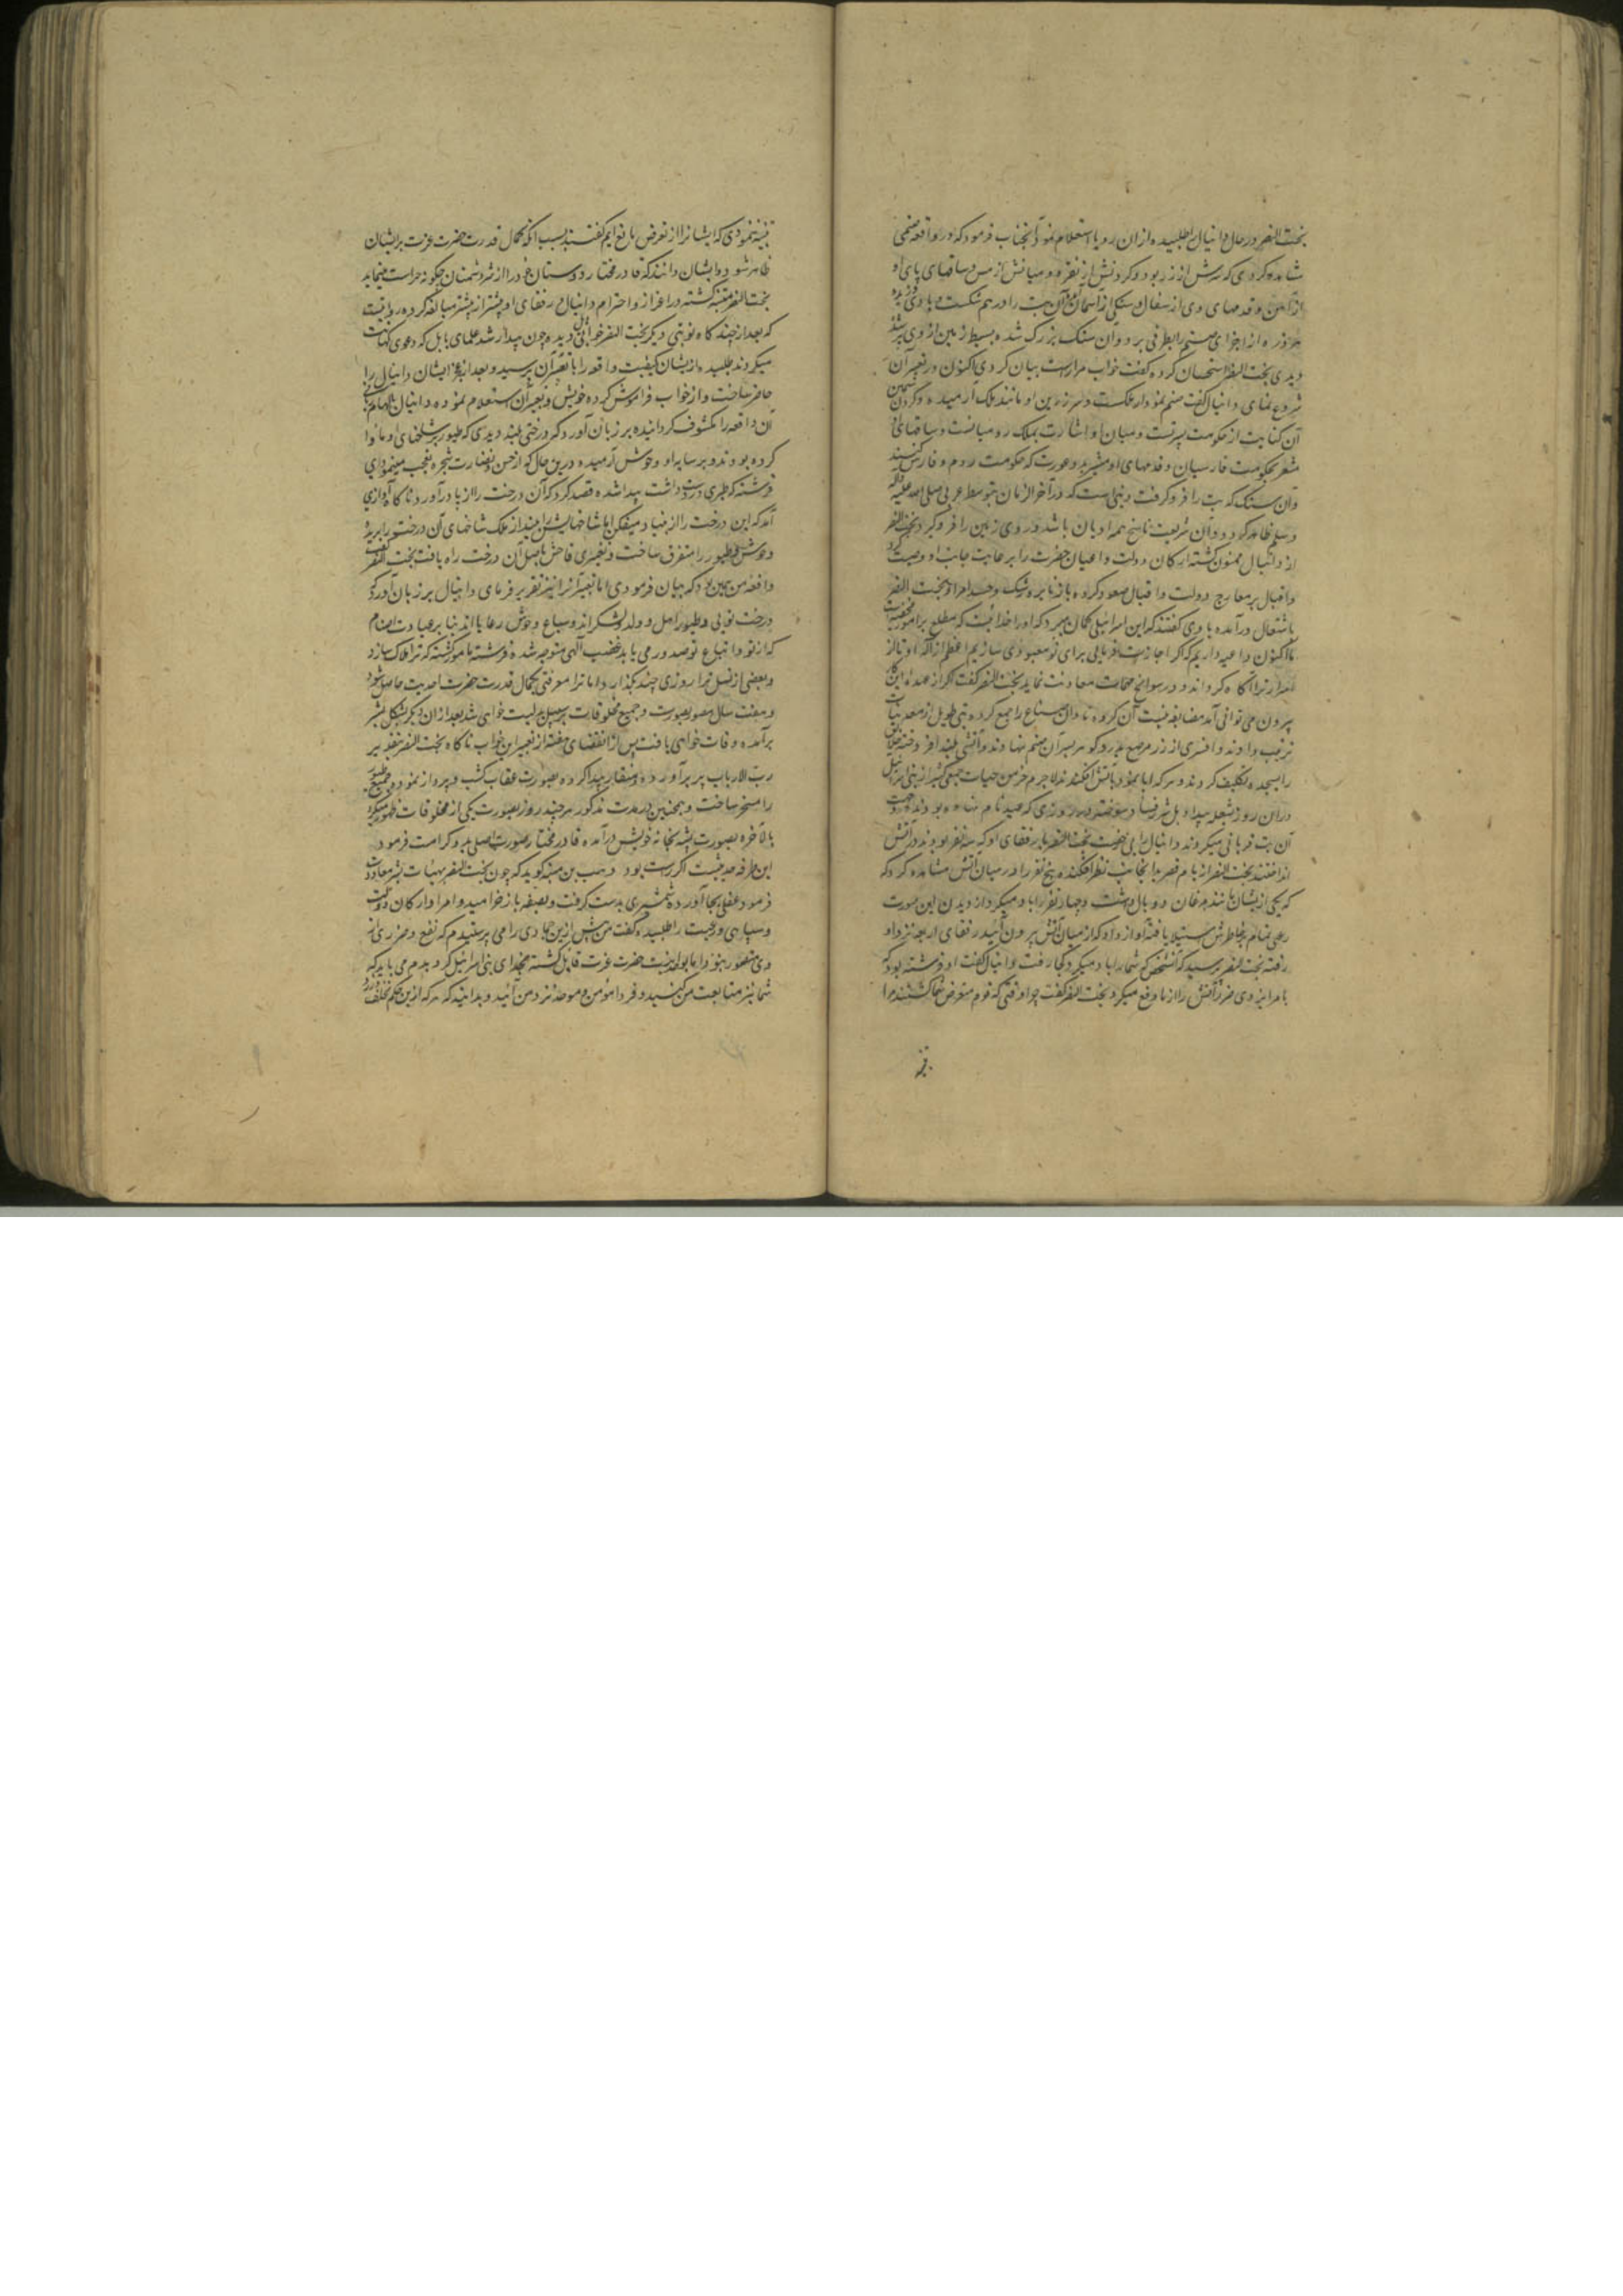 بخت النصر در حال دانیال را طلبیده از ان رویا استعلام نمود آنجناب فرمود که در واقعه صنمی
مشاهده کردی که سرش از زر بود و گردنش از نقره و میانش از مس و ساقهای پای او
از آهن و قدمهای وی از سفال و سنگی از آسمان آن بت را در هم شکست و باد وزیده
هر ذره از اجزای صنم را بطرفی برد و آن سنگ بزرگ شده بسیط زمین از وی پر شد
دیدی بخت النصر استحسان کرده گفت خواب مرا راست بیان کردی اکنون در تعبیر آن
شروع نمای دانیال گفت صنم نمودار ملکست و سر زرین او مانند ملک آرمیده و گردن سیمین
آن کنایت از حکومت پسر تست و میان او اشارت بملک رومیانست و ساقهای او
مشعر بحکومت فارسیان و قدمهای او مشیر بدو عورت که حکومت روم و فارس کنند
و آن سنگ که بت را فرو گرفت دینی است که در آخر الزمان بتوسط عربی صلی الله علیه و آله
و سلم ظاهر گردد و آن شریعت ناسخ همه ادیان باشد و روی زمین را فرو گیرد بخت النصر
از دانیال ممنون گشته ارکان دولت و اعیان حضرت را برعایت جانب او وصیت کرد
و اقبال بر معارج دولت و اقبال صعود کرده باز نایره رشک و حسد امرا و بخت النصر
باشتعال درآمده با وی گفتند که این اسرائیلی گمان میبرد که او را خدائیست که مطلع بر امور مخفیست
ما اکنون داعیه داریم که اگر اجازت فرمایی برای تو معبودی سازیم اعظم از اله او تا از
اسرار ترا آگاه گرداند و در سوانح مهمات معاونت نماید بخت النصر گفت اگر از عهده این کار
بیرون می توانی آمد مضایقه نیست آن گروه نادان صناع را جمع کرده بتی طویل از معدنیات
ترتیب دادند و افسری از زر مرصع بدر و گوهر بسر آن صنم نهادند و آتشی بلند افروخته خلایق
را بسجده تکلیف کردند و هر که ابا نمود بآتش افکندند لاجرم خرمن حیات جمعی کثیر از بنی اسرائیل
در آن روز بشعله بیداد اهل شر و فساد سوخته شد و روزی که عید نام نهاده بودند و بجهت
آن بت قربانی میکردند دانیال را بی رخصت بخت النصر با رفقای او که سه نفر بودند در آتش
انداختند بخت النصر از بام قصر بدانجانب نظر افکنده پنج نفر را در میان آتش مشاهده کرد که
که یکی از ایشان مانند مرغان دو بال داشت و چهار نفر را باد میکرد از دیدن این صورت
رعبی تمام بخاطرش استیلا یافته آواز داد که از میان آتش بیرون آئید رفقای اربعه نزد او
رفته بخت النصر پرسید که آنشخص که شما را باد میکرد کجا رفت دانیال گفت او فرشته بود که
بامر ایزدی ضرر آتش را از ما دفع میکرد بخت النصر گفت چرا وقتی که قوم متعرض شما گشتند مرا
تنبیه ننمودی که ایشانرا از تعرض مانع آیم گفتند بسبب آنکه کمال قدرت حضرت عزت بر ایشان
ظاهر شود و ایشان دانند که قادر مختار دوستان خود را از شر دشمنان چگونه حراست مینماید
بخت النصر متنبه گشته در اعزاز و احترام دانیال و رفقای او بیشتر از پیشتر مبالغه کرده روایتست
که بعد از چند گاه نوبتی دیگر بخت النصر خوابی دیده چون بیدار شد علمای بابل که دعوی کهانت
میکردند طلبیده از ایشان کیفیت واقعه را با تعبیر آن پرسید و بعد از عجز ایشان دانیال را
حاضر ساخت و از خواب فراموش کرده خویش و تعبیر آن استعلام نموده دانیال بالهام ربانی
آن واقعه را مکشوف گردانیده بر زبان آورد که درختی بلند دیدی که طیور بر شاخهای او ماوا
کرده بودند و بر سایه او وحوش آرمیده درین حال که از حسن و نضارت شجره تعجب مینمودی
فرشته که تبری در دست داشت پیدا شده قصد کرد که آن درخت را از پا درآورد ناگاه آوازی
آمد که این درخت را از بنیاد میفکن اما شاخهایش را بینداز ملک شاخهای آن درخت را بریده
وحوش و طیور را متفرق ساخت و تغیری فاحش باصل آن درخت راه یافت بخت النصر گفت
واقعه من همین بود که بیان فرمودی اما تعبیر آنرا نیز تقریر فرمای دانیال بر زبان آورد که
درخت تویی و طیور اهل و ولد و لشکراند و سباع و وحوش رعایااند بنا بر عبادت اصنام
که از تو و اتباع تو صدور می یابد غضب آلهی متوجه شده فرشته مامور گشته که ترا هلاک سازد
و بعضی از نسل ترا روزی چند بگذارد اما ترا معرفتی بکمال قدرت حضرت احدیت حاصل شود
و هفت سال مصور بصورت جمیع مخلوقات بر سبیل بدلیت خواهی شد بعد از ان دیگر بشکل بشر
برآمده وفات خواهی یافت پس از انقضای هفته از تعبیر این خواب ناگاه بخت النصر بتقدیر
رب الارباب پر برآورده و منقار پیدا کرده بصورت عقاب گشت و پرواز نموده جمیع طیور
را مسخر ساخت و همچنین در مدت مذکور هر چند روز بصورت یکی از مخلوقات ظهور میکرد
بالآخره بصورت پشه بخانه خویش درآمده قادر مختار صورت اصلی بدو کرامت فرمود
این طرفه حدیثیست اگر راست بود وهب بن منبه گوید که چون بخت النصر بهیات بشر معاودت
فرمود غسلی بجا آورده شمشیری بدست گرفت و بصفه باز خرامید و امرا و ارکان دولت
و سپاهی و رعیت را طلبیده گفت من پیش ازین جمادی را می پرستیدم که نفع و ضرری از
وی متصور نبود اما بوحدانیت حضرت عزت قایل گشته بخدای بنی اسرائیل گرویدم می باید که
شما نیز متابعت من کنید و فردا مؤمن و موحد نزد من آئید و بدانید که هر که ازین حکم تخلف ورزد